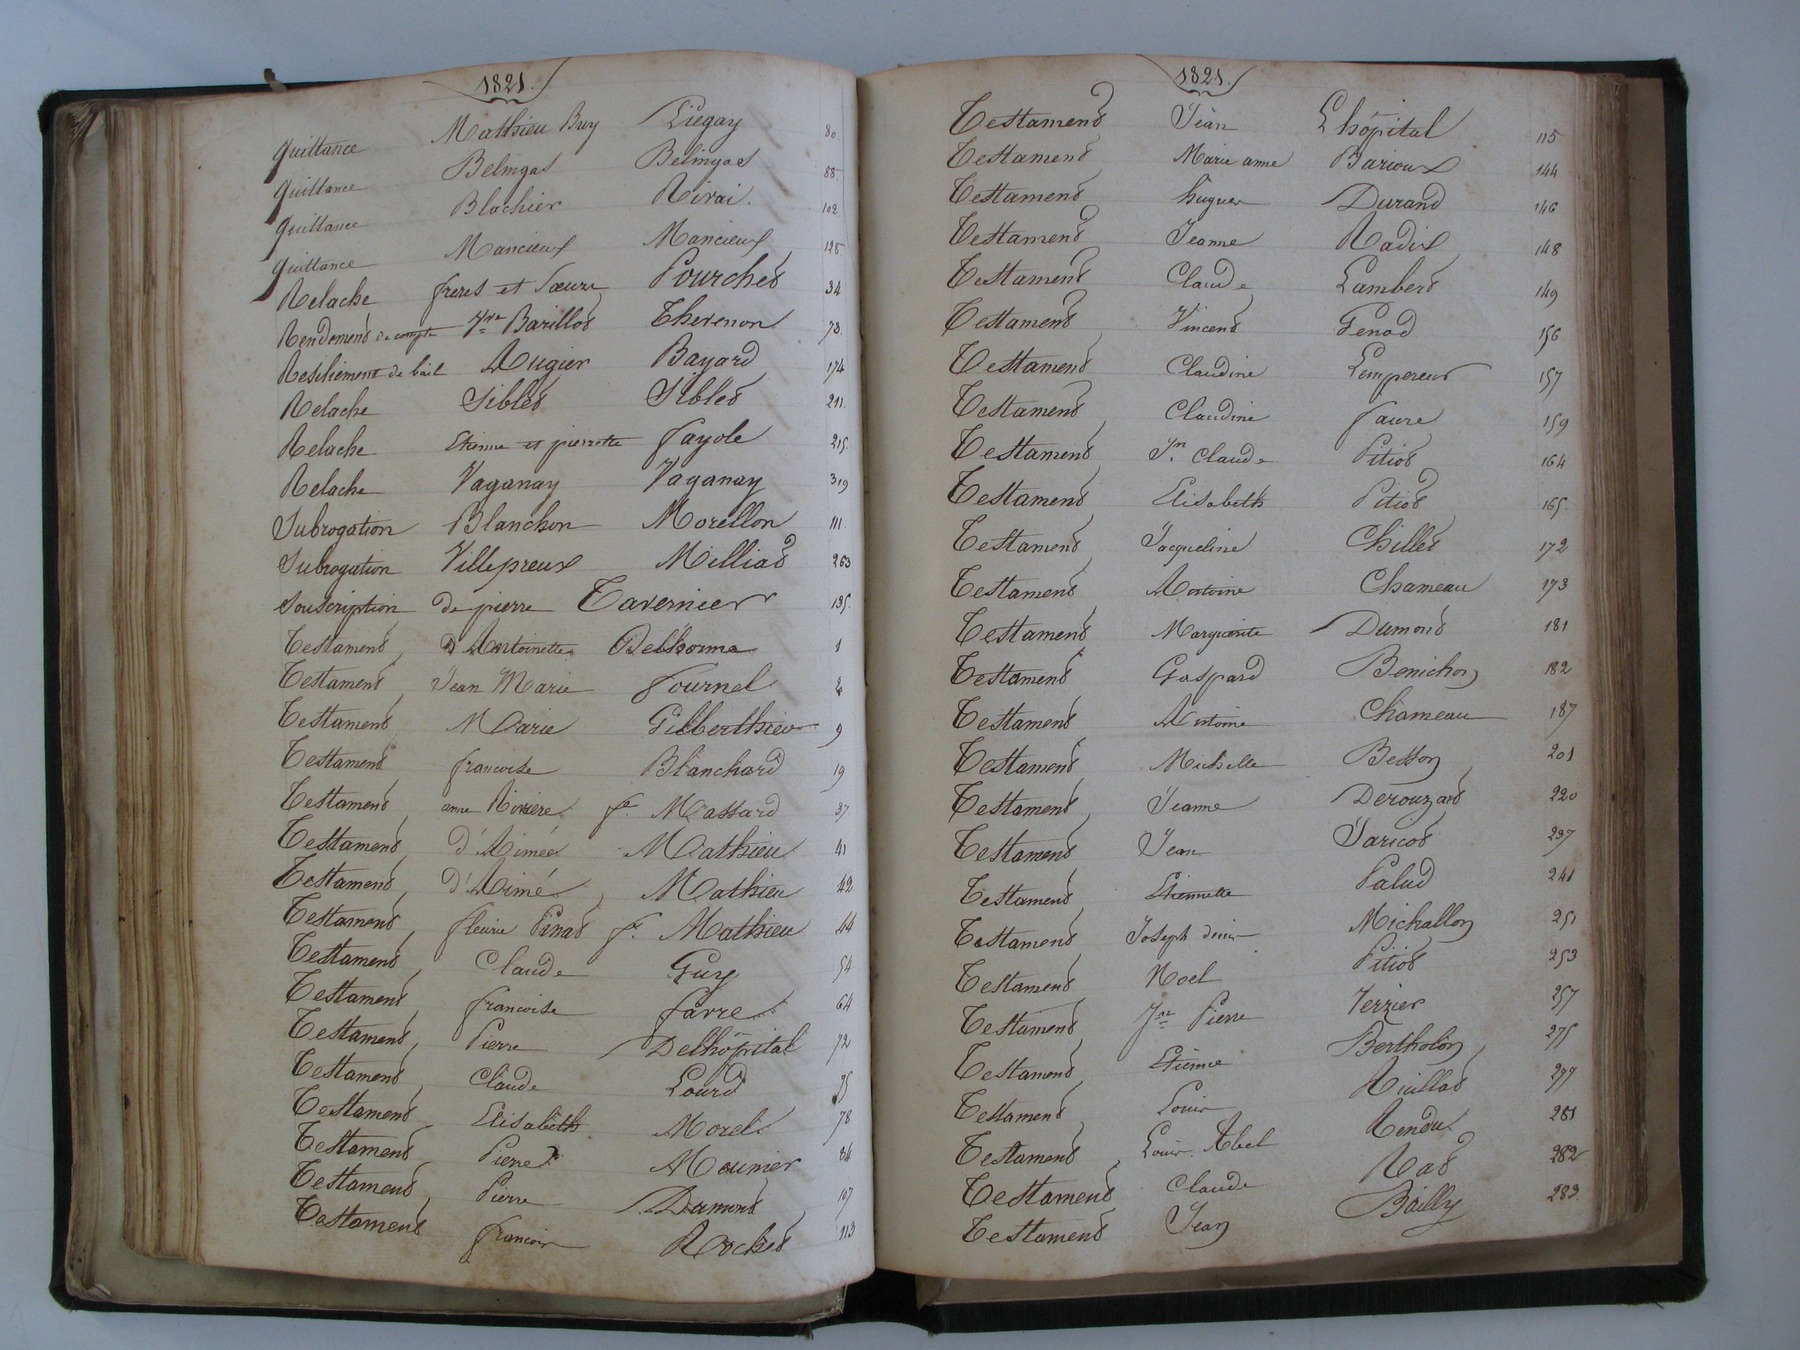 1821.
quittance Mathieu Bery Liegay 80.
quittance Belingas Belingas 88.
quittance Blachier Rivai. 102
quittance Mancieux Mancieux 125
Relache freres et Sœurs Pourches 34
Rendement de compte Barillot Thevenon 73.
Resiliement de bail Rugier Bayard 174
Relache Siblet Siblet 211.
Relache Etienne et pierrette fayole 215.
Relache Vaganay Vaganay 319
Subrogation Blanchon Morellon 111.
Subrogation Villepreux Milliat 263
Souscription de pierre Tavernier 135.
Testament d'Antoinette Delhorme 1
Testament Jean Marie fournel 4
Testament Marie Gilberthier 9
Testament francoise Blanchard 19
Testament anne Riviere fe. Massard 37.
Testament d'Aimée Mathieu 41
Testament d'Aimé Mathieu 42
Testament fleurie Panat fe. Mathieu 44
Testament Claude Guy 54.
Testament francoise favre 64
Testament Pierre Delhôpital 72
Testament Claude Lourd 75
Testament Elisabeth Morel 78
Testament Pierre Mounier 84
Testament Pierre Dumont 107
Testament francois Rochet 113
1821.
Testament Jean Lhôpital 115
Testament Marie anne Barioux 144
Testament hugues Durand 146
Testament Jeanne Radix 148
Testament Claude Lambert 149
Testament Vincent Penod 156
Testament Claudine Lempereur 157
Testament Claudine faure 159
Testament Jn. Claude Pitiot 164
Testament Elisabeth Pitiot 165.
Testament Jacqueline Chillet 172
Testament Antoine Chameau 173
Testament Marguerite Dumont 181
Testament Gaspard Benichon 182
Testament Antoine Chameau 187
Testament Michelle Besson 201
Testament Jeanne Derouzard 220
Testament Jean Jaricot 237
Testament Etiennette Palud 241
Testament Joseph denis Michallon 251
Testament Noel Pitiot 253
Testament Jne Pierre Verzier 257
Testament Etienne Bertholon 275
Testament Louis Riullat 277
Testament Louis Abel Rendu 281
Testament Claude Rat 282
Testament Jean Bailly 283.